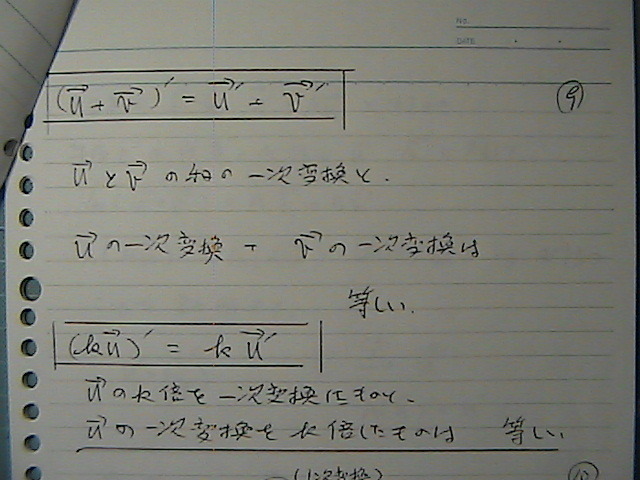 NO.
DATE
(u⃗ + v⃗)′ = u⃗′ + v⃗′
⑨
u⃗ と v⃗ の和の一次変換と、
u⃗ の一次変換 + v⃗ の一次変換は
等しい。
(ku⃗)′ = k u⃗′
u⃗ のk倍を一次変換したものと、
u⃗ の一次変換を k倍したものは 等しい
(1次変換)
⑩